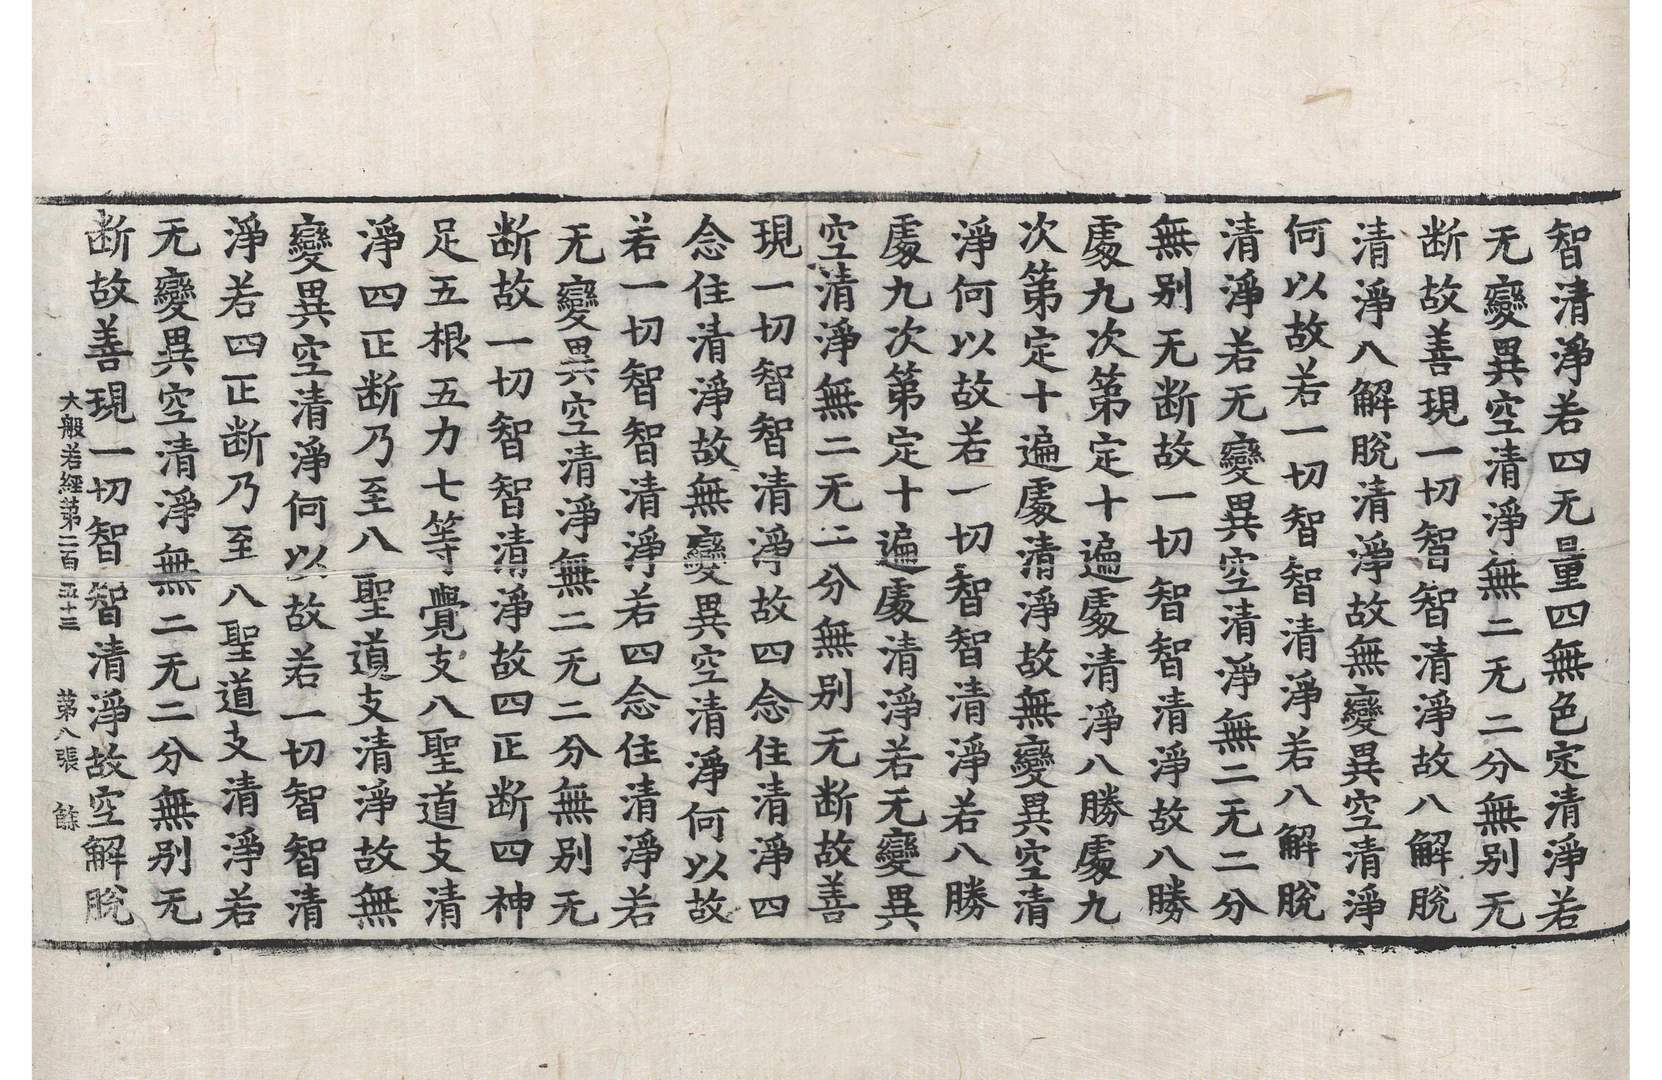 智清淨若四无量四無色定清淨若
无變異空清淨無二无二分無别无
断故善現一切智智清淨故八解脫
清淨八解脫清淨故無變異空清淨
何以故若一切智智清淨若八解脫
清淨若无變異空清淨無二无二分
無别无断故一切智智清淨故八勝
處九次第定十遍處清淨八勝處九
次第定十遍處清淨故無變異空清
淨何以故若一切智智清淨若八勝
處九次第定十遍處清淨若无變異
空清淨無二无二分無别无断故善
現一切智智清淨故四念住清淨四
念住清淨故無變異空清淨何以故
若一切智智清淨若四念住清淨若
无變異空清淨無二无二分無别无
断故一切智智清淨故四正断四神
足五根五力七等覺支八聖道支清
淨四正断乃至八聖道支清淨故無
變異空清淨何以故若一切智智清
淨若四正断乃至八聖道支清淨若
无變異空清淨無二无二分無别无
断故善現一切智智清淨故空解脫
大般若經第二百五十三 第八張 餘